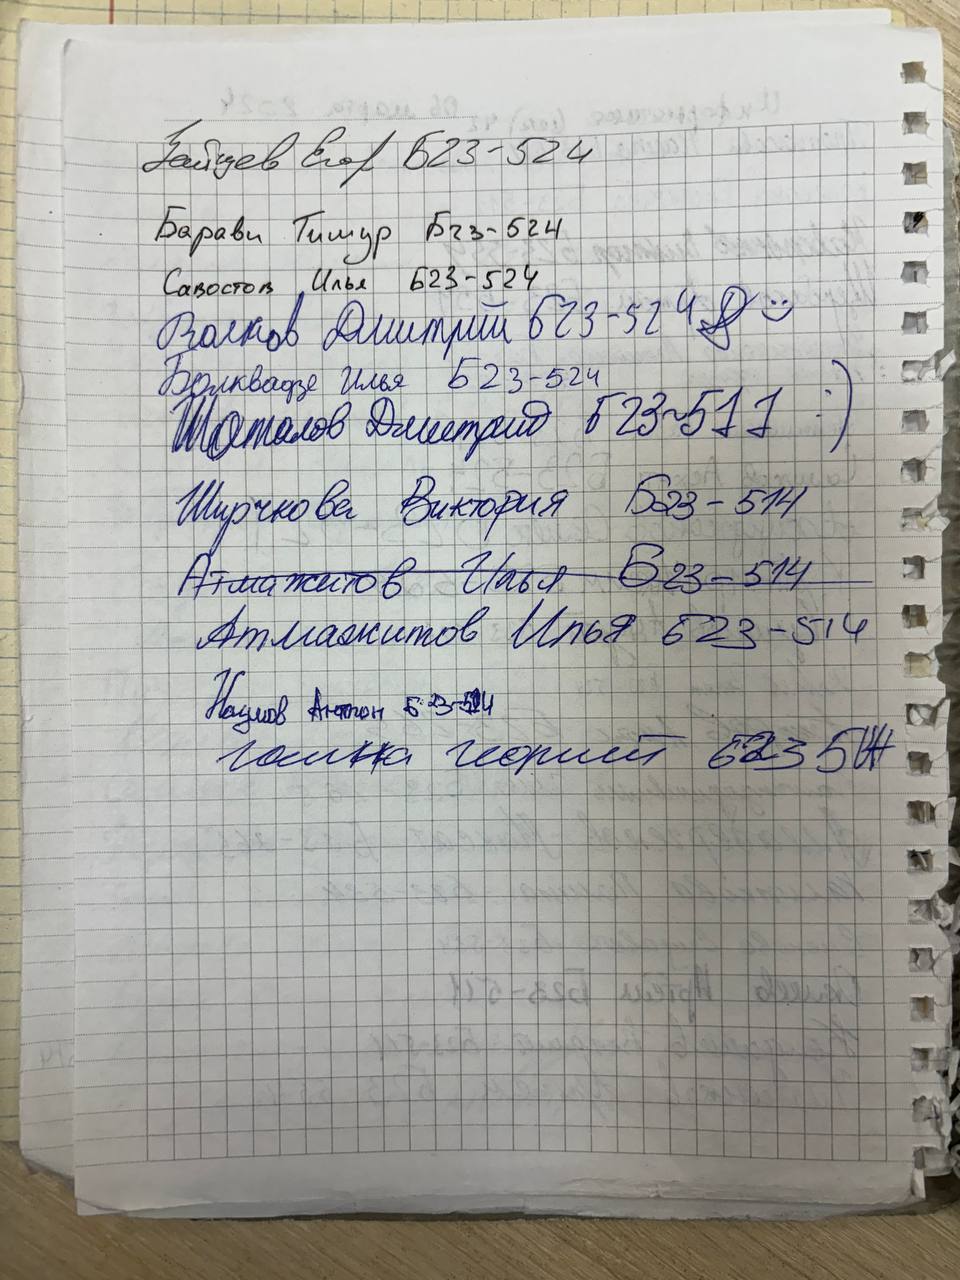 Зайцев Егор Б23-524
Барави Тимур Б23-524
Савостов Илья Б23-524
Волков Дмитрий Б23-524
Болквадзе Илья Б23-524
Шаталов Дмитрий Б23-511 :)
Ширчкова Виктория Б23-514
Атмажитов Илья Б23-514
Атмажитов Илья Б23-514
Наумов Антон Б23-514
Б23 514